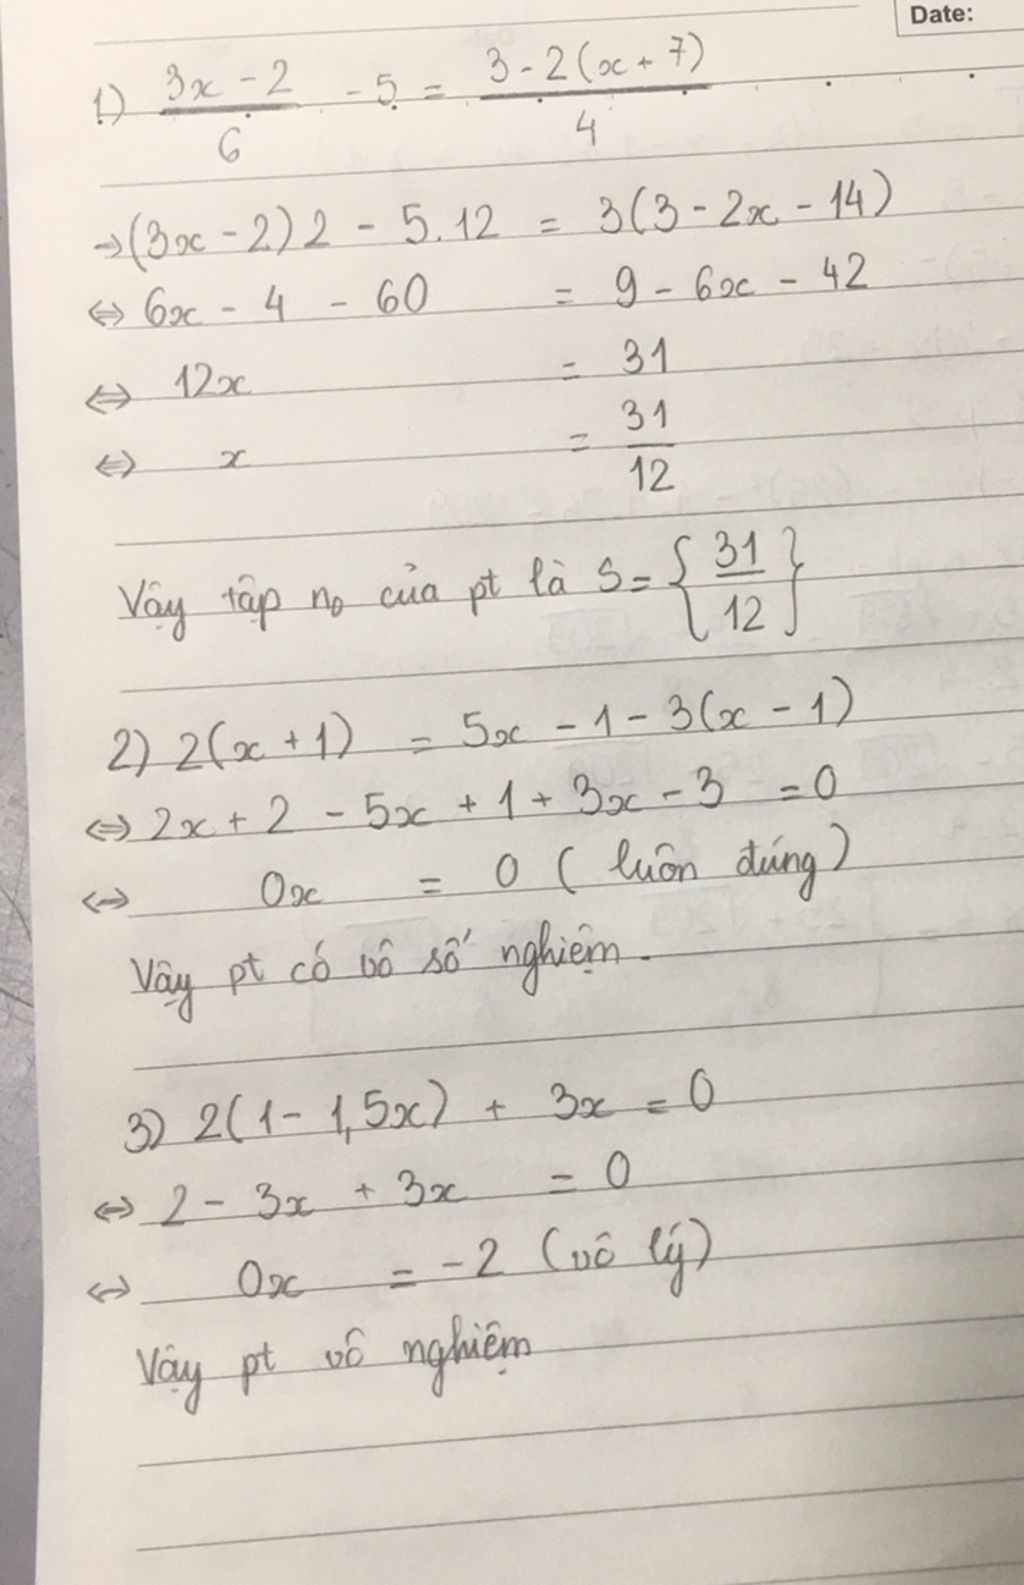 Date:
1) \frac{3x - 2}{6} - 5 = \frac{3 - 2(x + 7)}{4}
→ (3x - 2) 2 - 5.12 = 3(3 - 2x - 14)
⇔ 6x - 4 - 60 = 9 - 6x - 42
⇔ 12x = 31
⇔ x = \frac{31}{12}
Vậy tập no của pt là S = {\frac{31}{12}}
2) 2(x + 1) = 5x - 1 - 3(x - 1)
⇔ 2x + 2 - 5x + 1 + 3x - 3 = 0
⇔ 0x = 0 ( luôn đúng )
Vậy pt có vô số nghiệm.
3) 2(1 - 1,5x) + 3x = 0
⇔ 2 - 3x + 3x = 0
⇔ 0x = -2 (vô lý)
Vậy pt vô nghiệm